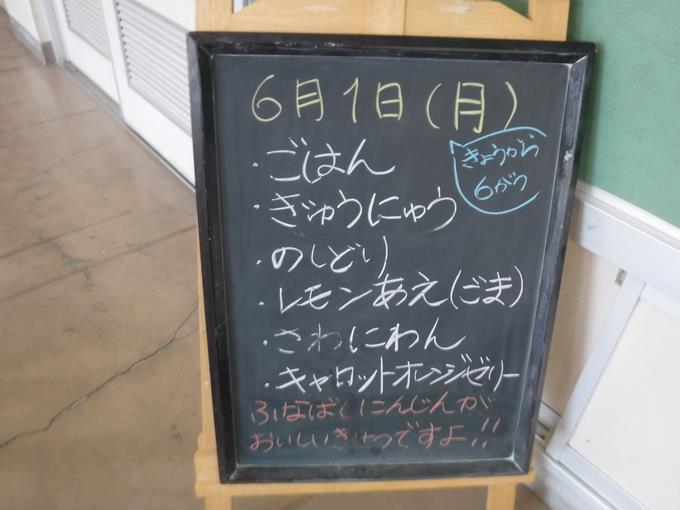 6月1日(月)
きょうから
6がつ
・ごはん
・ぎゅうにゅう
・のしどり
・レモンあえ(ごま)
・さわにわん
・キャロットオレンジゼリー
ふなばしにんじんが
おいしいきせつですよ!!